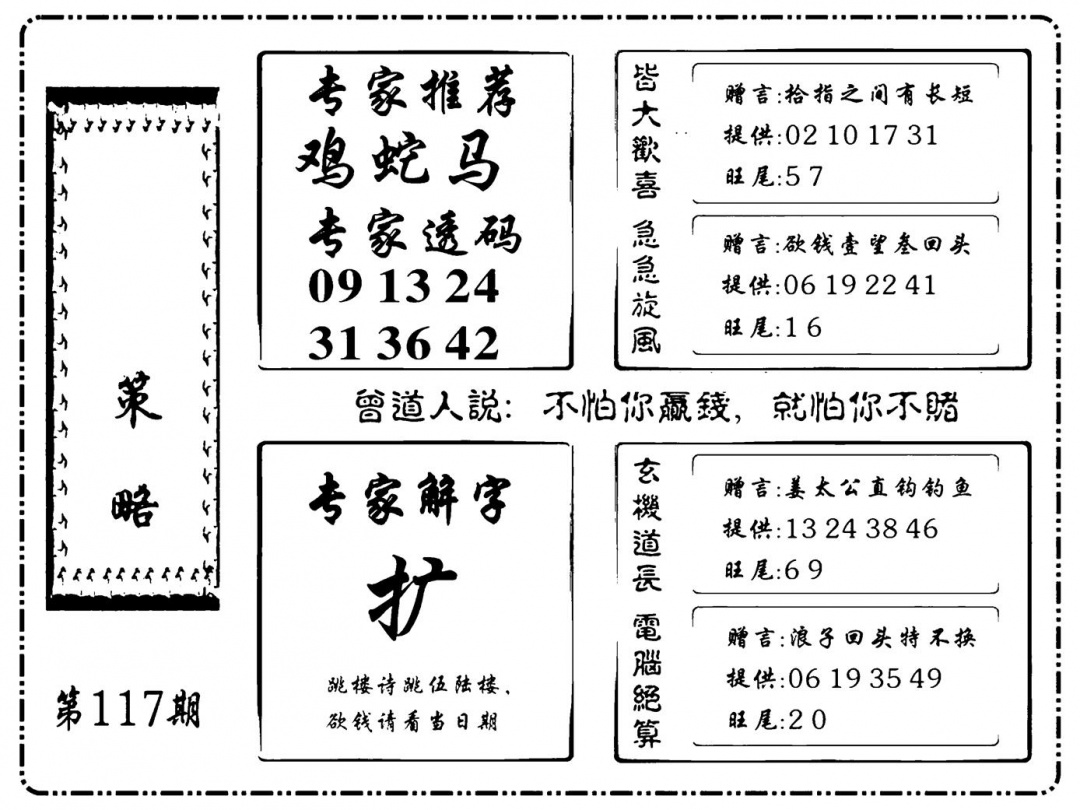 策
略
第117期
专家推荐
鸡蛇马
专家透码
09 13 24
31 36 42
皆大歡喜
赠言:拾指之间有长短
提供:02 10 17 31
旺尾:5 7
急急旋風
赠言:欲钱壹望叁回头
提供:06 19 22 41
旺尾:1 6
曾道人説: 不怕你贏錢, 就怕你不賭
专家解字
扩
跳楼诗跳伍陆楼,
欲钱请看当日期
玄機道長
赠言:姜太公直钩钓鱼
提供:13 24 38 46
旺尾:6 9
電腦絕算
赠言:浪子回头特不换
提供:06 19 35 49
旺尾:2 0